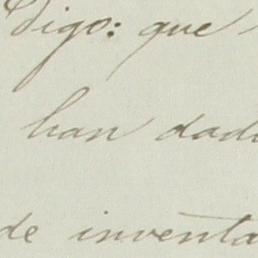 Digo: que
han dad
de inventa